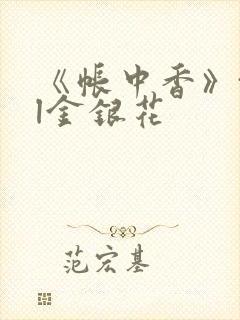 《帐中香》
|金银花
范宏基